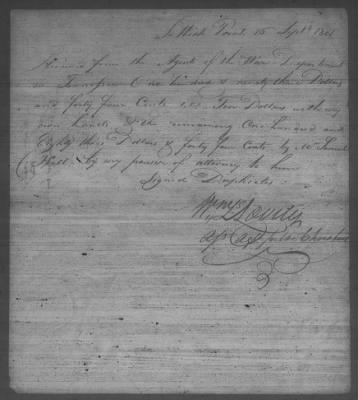 Point 15 Sept. 1801
Received from the Agent of the War Department
in Tennessee One hundred & ninety three Dollars
and forty four Cents Ten Dollars with my
own hands & the remaining One hundred and
Eighty three Dollars & forty four Cents by Mr Samuel
Hall by my power of attorney to him
Signed Duplicates
Wm L Lovely